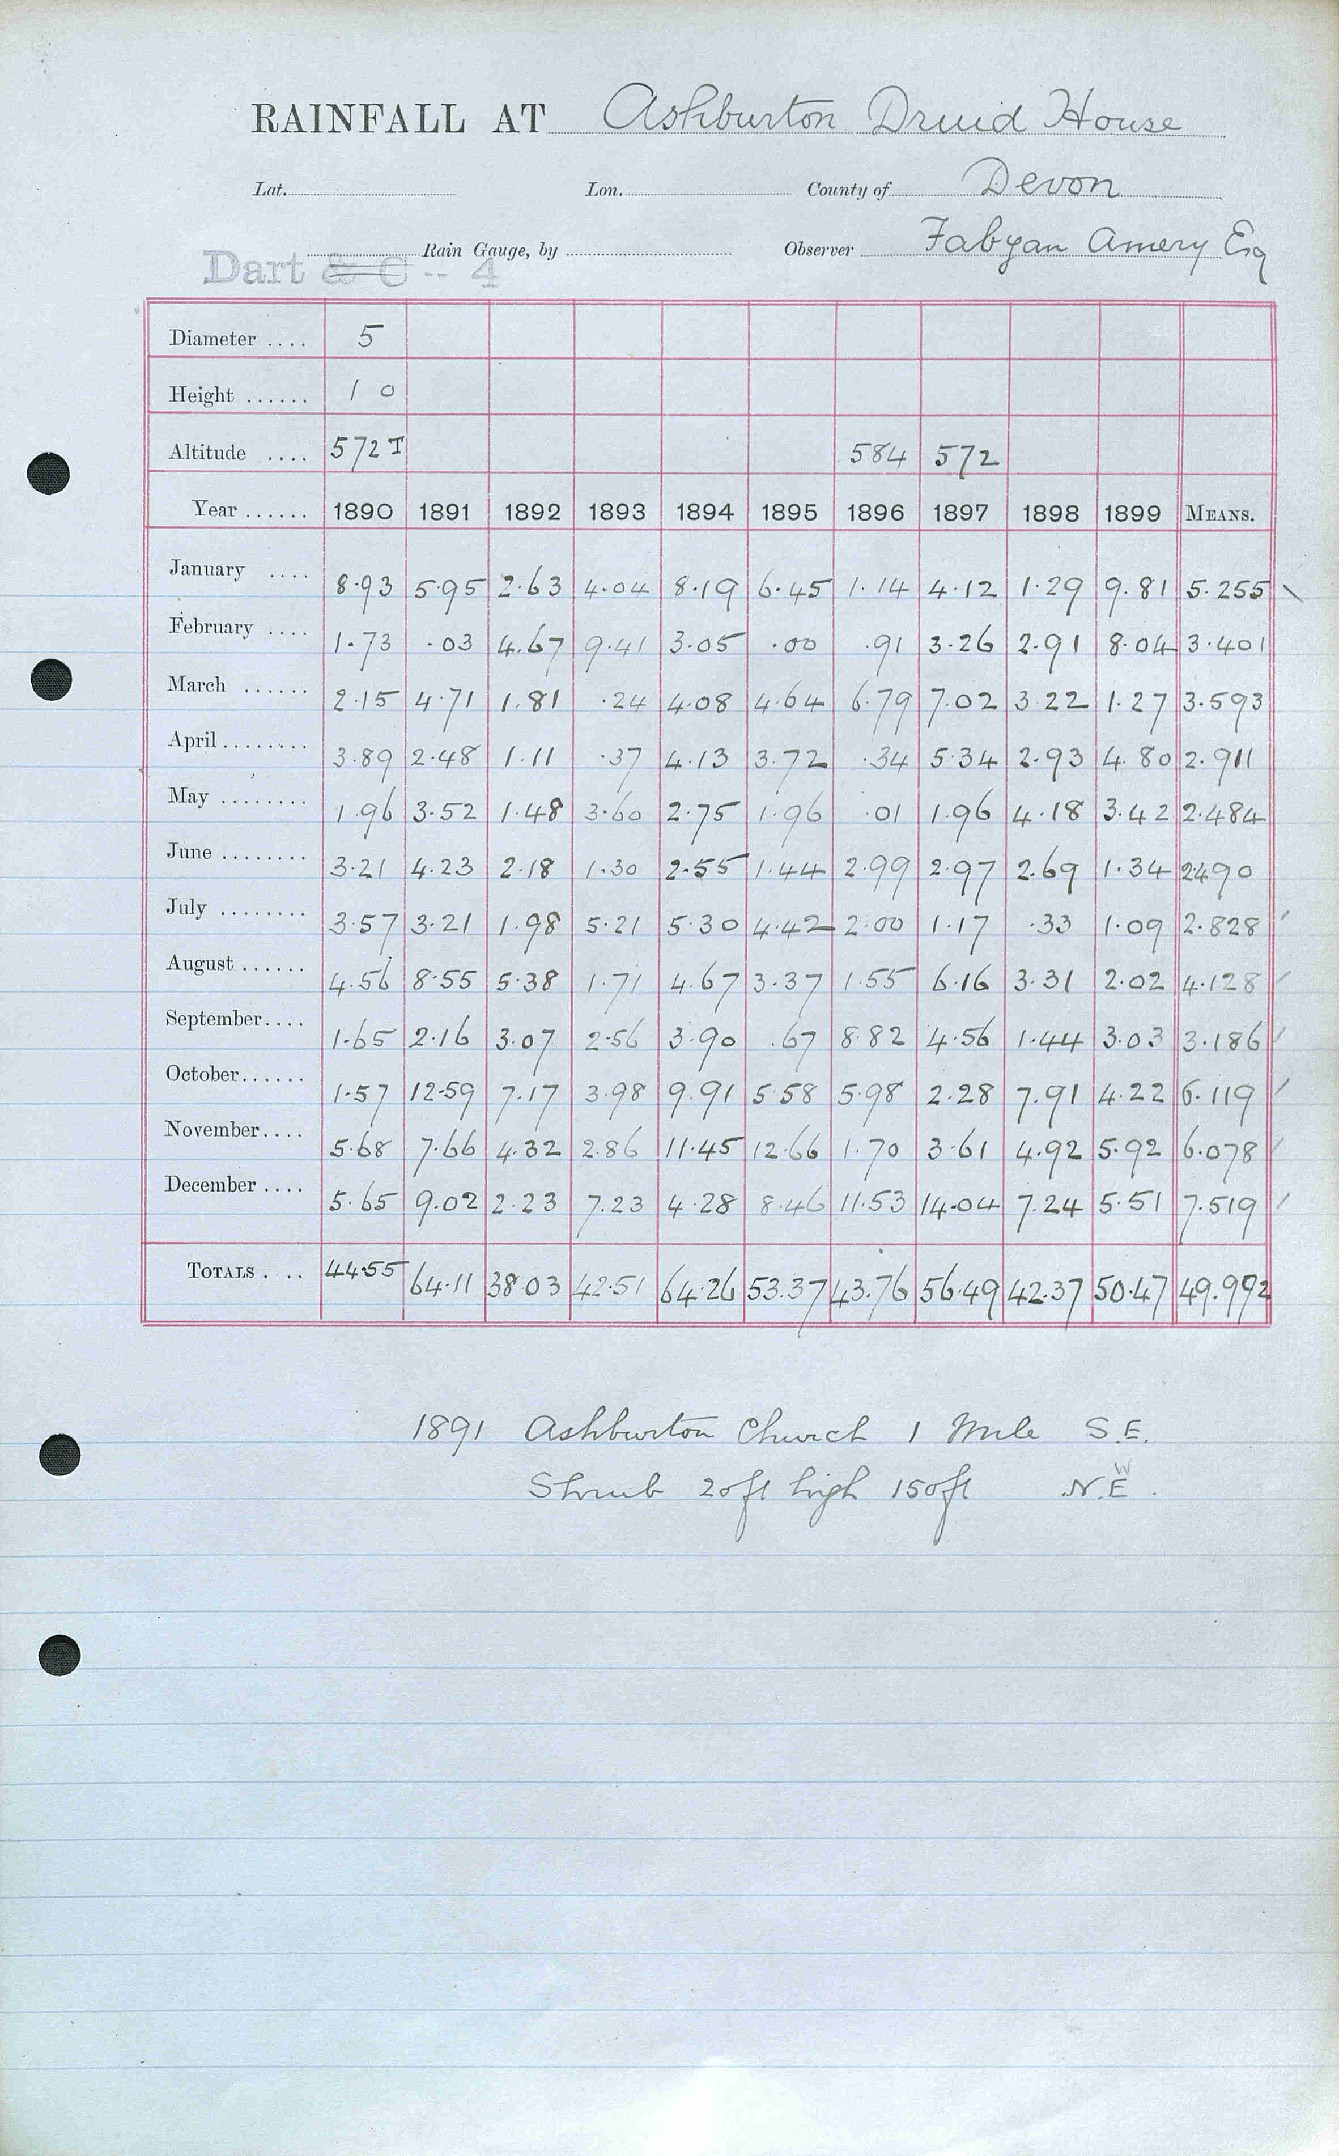 RAINFALL AT Ashburton Druid House
Lat. Lon. County of Devon
Rain Gauge, by Observer Fabyan Amery Esq
Dart & C -- 4
Diameter .... 5
Height ...... 1 0
Altitude .... 572 T 584 572
Year ...... 1890 1891 1892 1893 1894 1895 1896 1897 1898 1899 MEANS.
January .... 8.93 5.95 2.63 4.04 8.19 6.45 1.14 4.12 1.29 9.81 5.255
February .... 1.73 .03 4.67 9.41 3.05 .00 .91 3.26 2.91 8.04 3.401
March ...... 2.15 4.71 1.81 .24 4.08 4.64 6.79 7.02 3.22 1.27 3.593
April ........ 3.89 2.48 1.11 .37 4.13 3.72 .34 5.34 2.93 4.80 2.911
May ........ 1.96 3.52 1.48 3.60 2.75 1.96 .01 1.96 4.18 3.42 2.484
June ........ 3.21 4.23 2.18 1.30 2.55 1.44 2.99 2.97 2.69 1.34 2490
July ........ 3.57 3.21 1.98 5.21 5.30 4.42 2.00 1.17 .33 1.09 2.828
August ...... 4.56 8.55 5.38 1.71 4.67 3.37 1.55 6.16 3.31 2.02 4.128
September .... 1.65 2.16 3.07 2.56 3.90 .67 8.82 4.56 1.44 3.03 3.186
October ...... 1.57 12.59 7.17 3.98 9.91 5.58 5.98 2.28 7.91 4.22 6.119
November .... 5.68 7.66 4.32 2.86 11.45 12.66 1.70 3.61 4.92 5.92 6.078
December .... 5.65 9.02 2.23 7.23 4.28 8.46 11.53 14.04 7.24 5.51 7.519
TOTALS .... 44.55 64.11 38.03 42.51 64.26 53.37 43.76 56.49 42.37 50.47 49.992
1891 Ashburton Church 1 Mile S.E.
Shrub 20ft high 150ft N.E W.